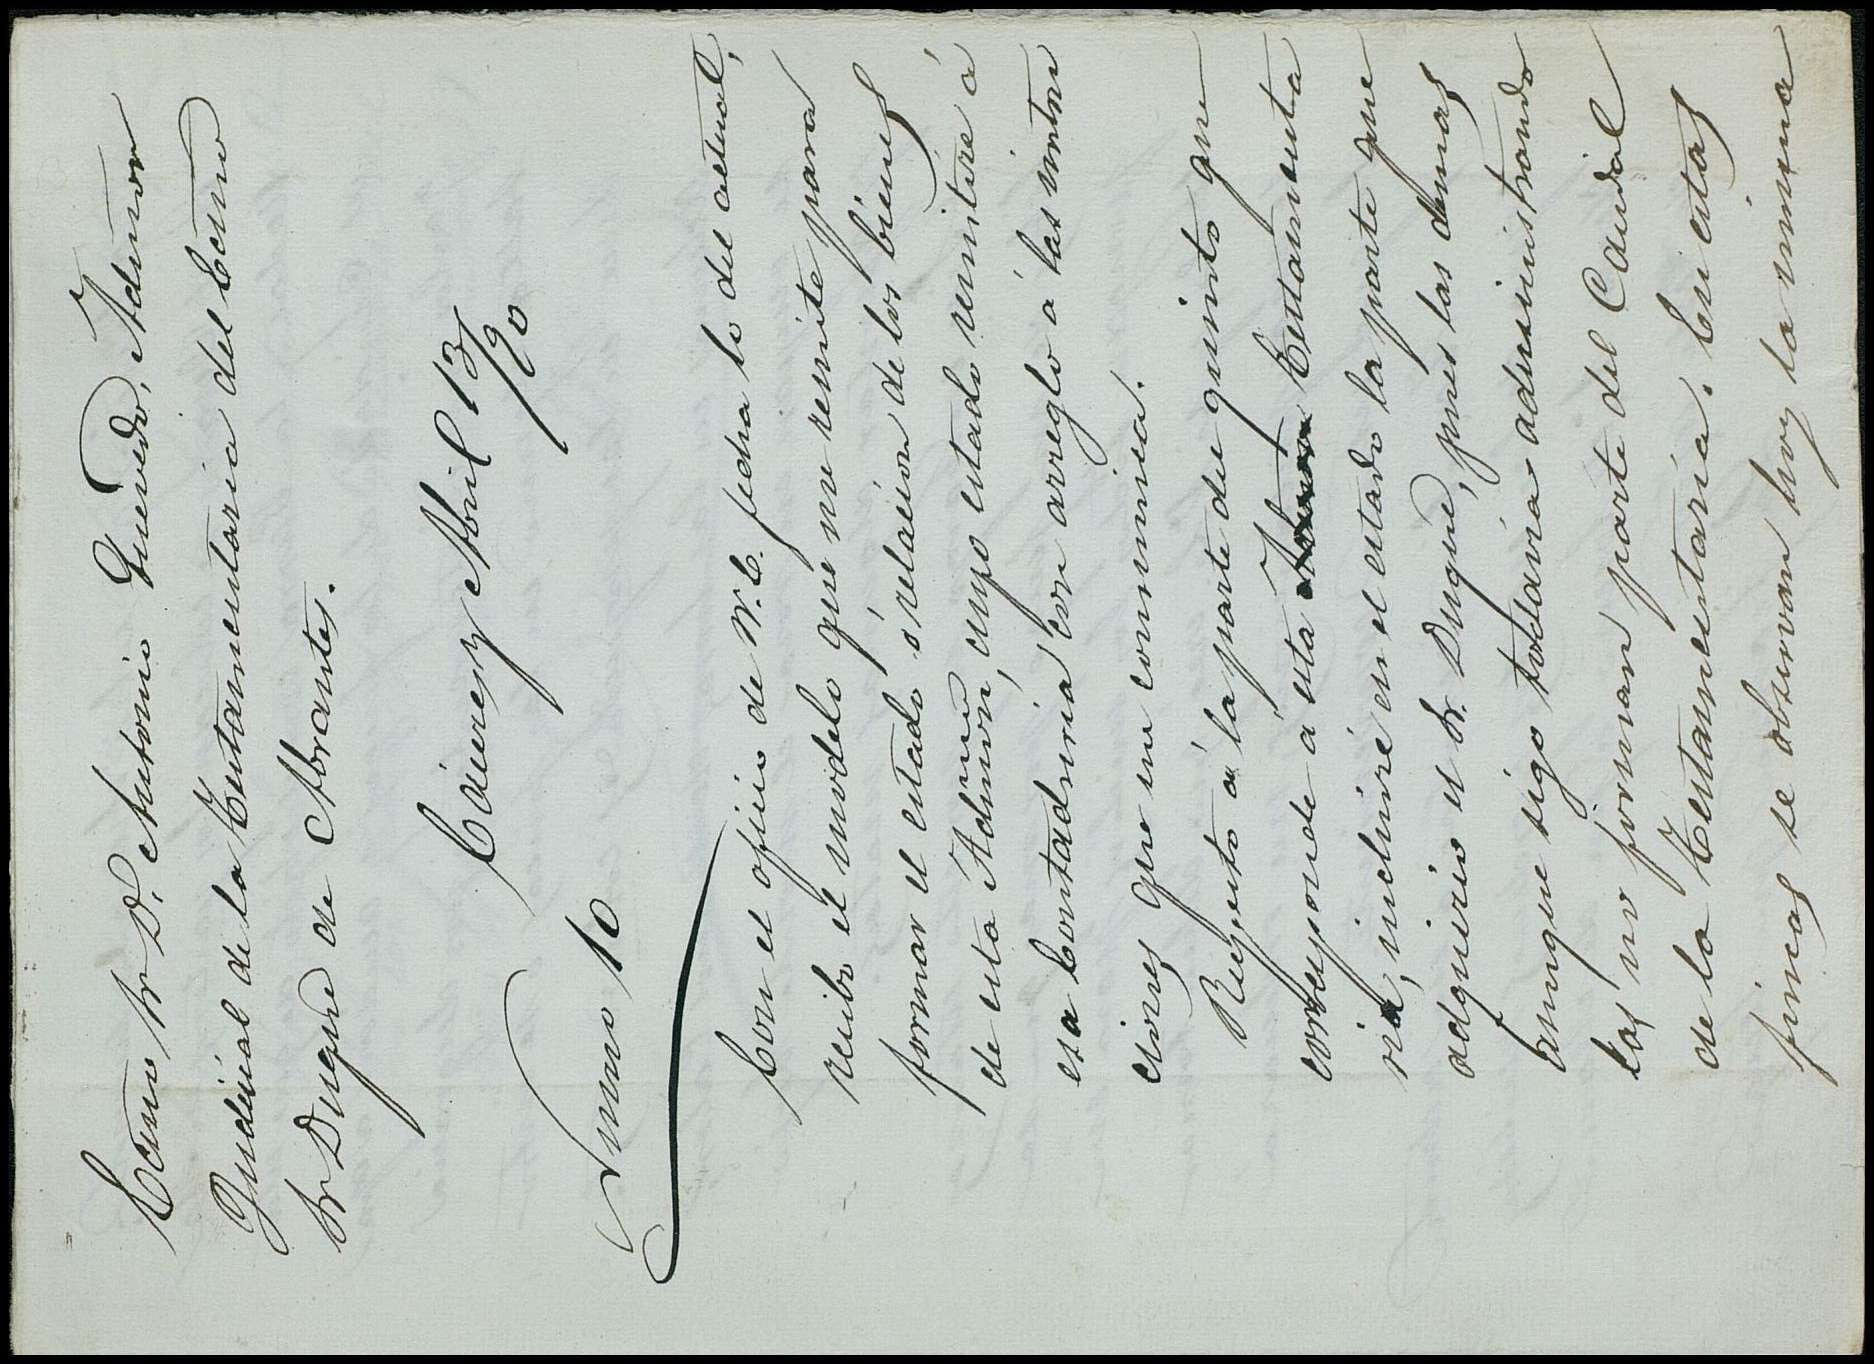 Ecmo Sr D. Antonio Quevedo, Admor
Judicial de la Testamentaria del Ecmo
Sr Duque de Abrantes.
Cáceres y Abril 13/90
Numo 10
Con el oficio de V.E. fecha 10 del actual,
recibo el modelo que me remite para
formar el estado ó relacion de los bienes
de esta Admon, cuyo estado remitiré á
esa Contaduria con arreglo á las instruc
ciones que me comunica.
Respecto á la parte de quinto que
corresponde á esta Testamenta
ria, incluiré en el estado la parte que
adquirió el Sr. Duque, pues las demas
aunque sigo todavia administrando
las no forman parte del Caudal
de la Testamentaria. En estas
fincas se observan hoy la misma